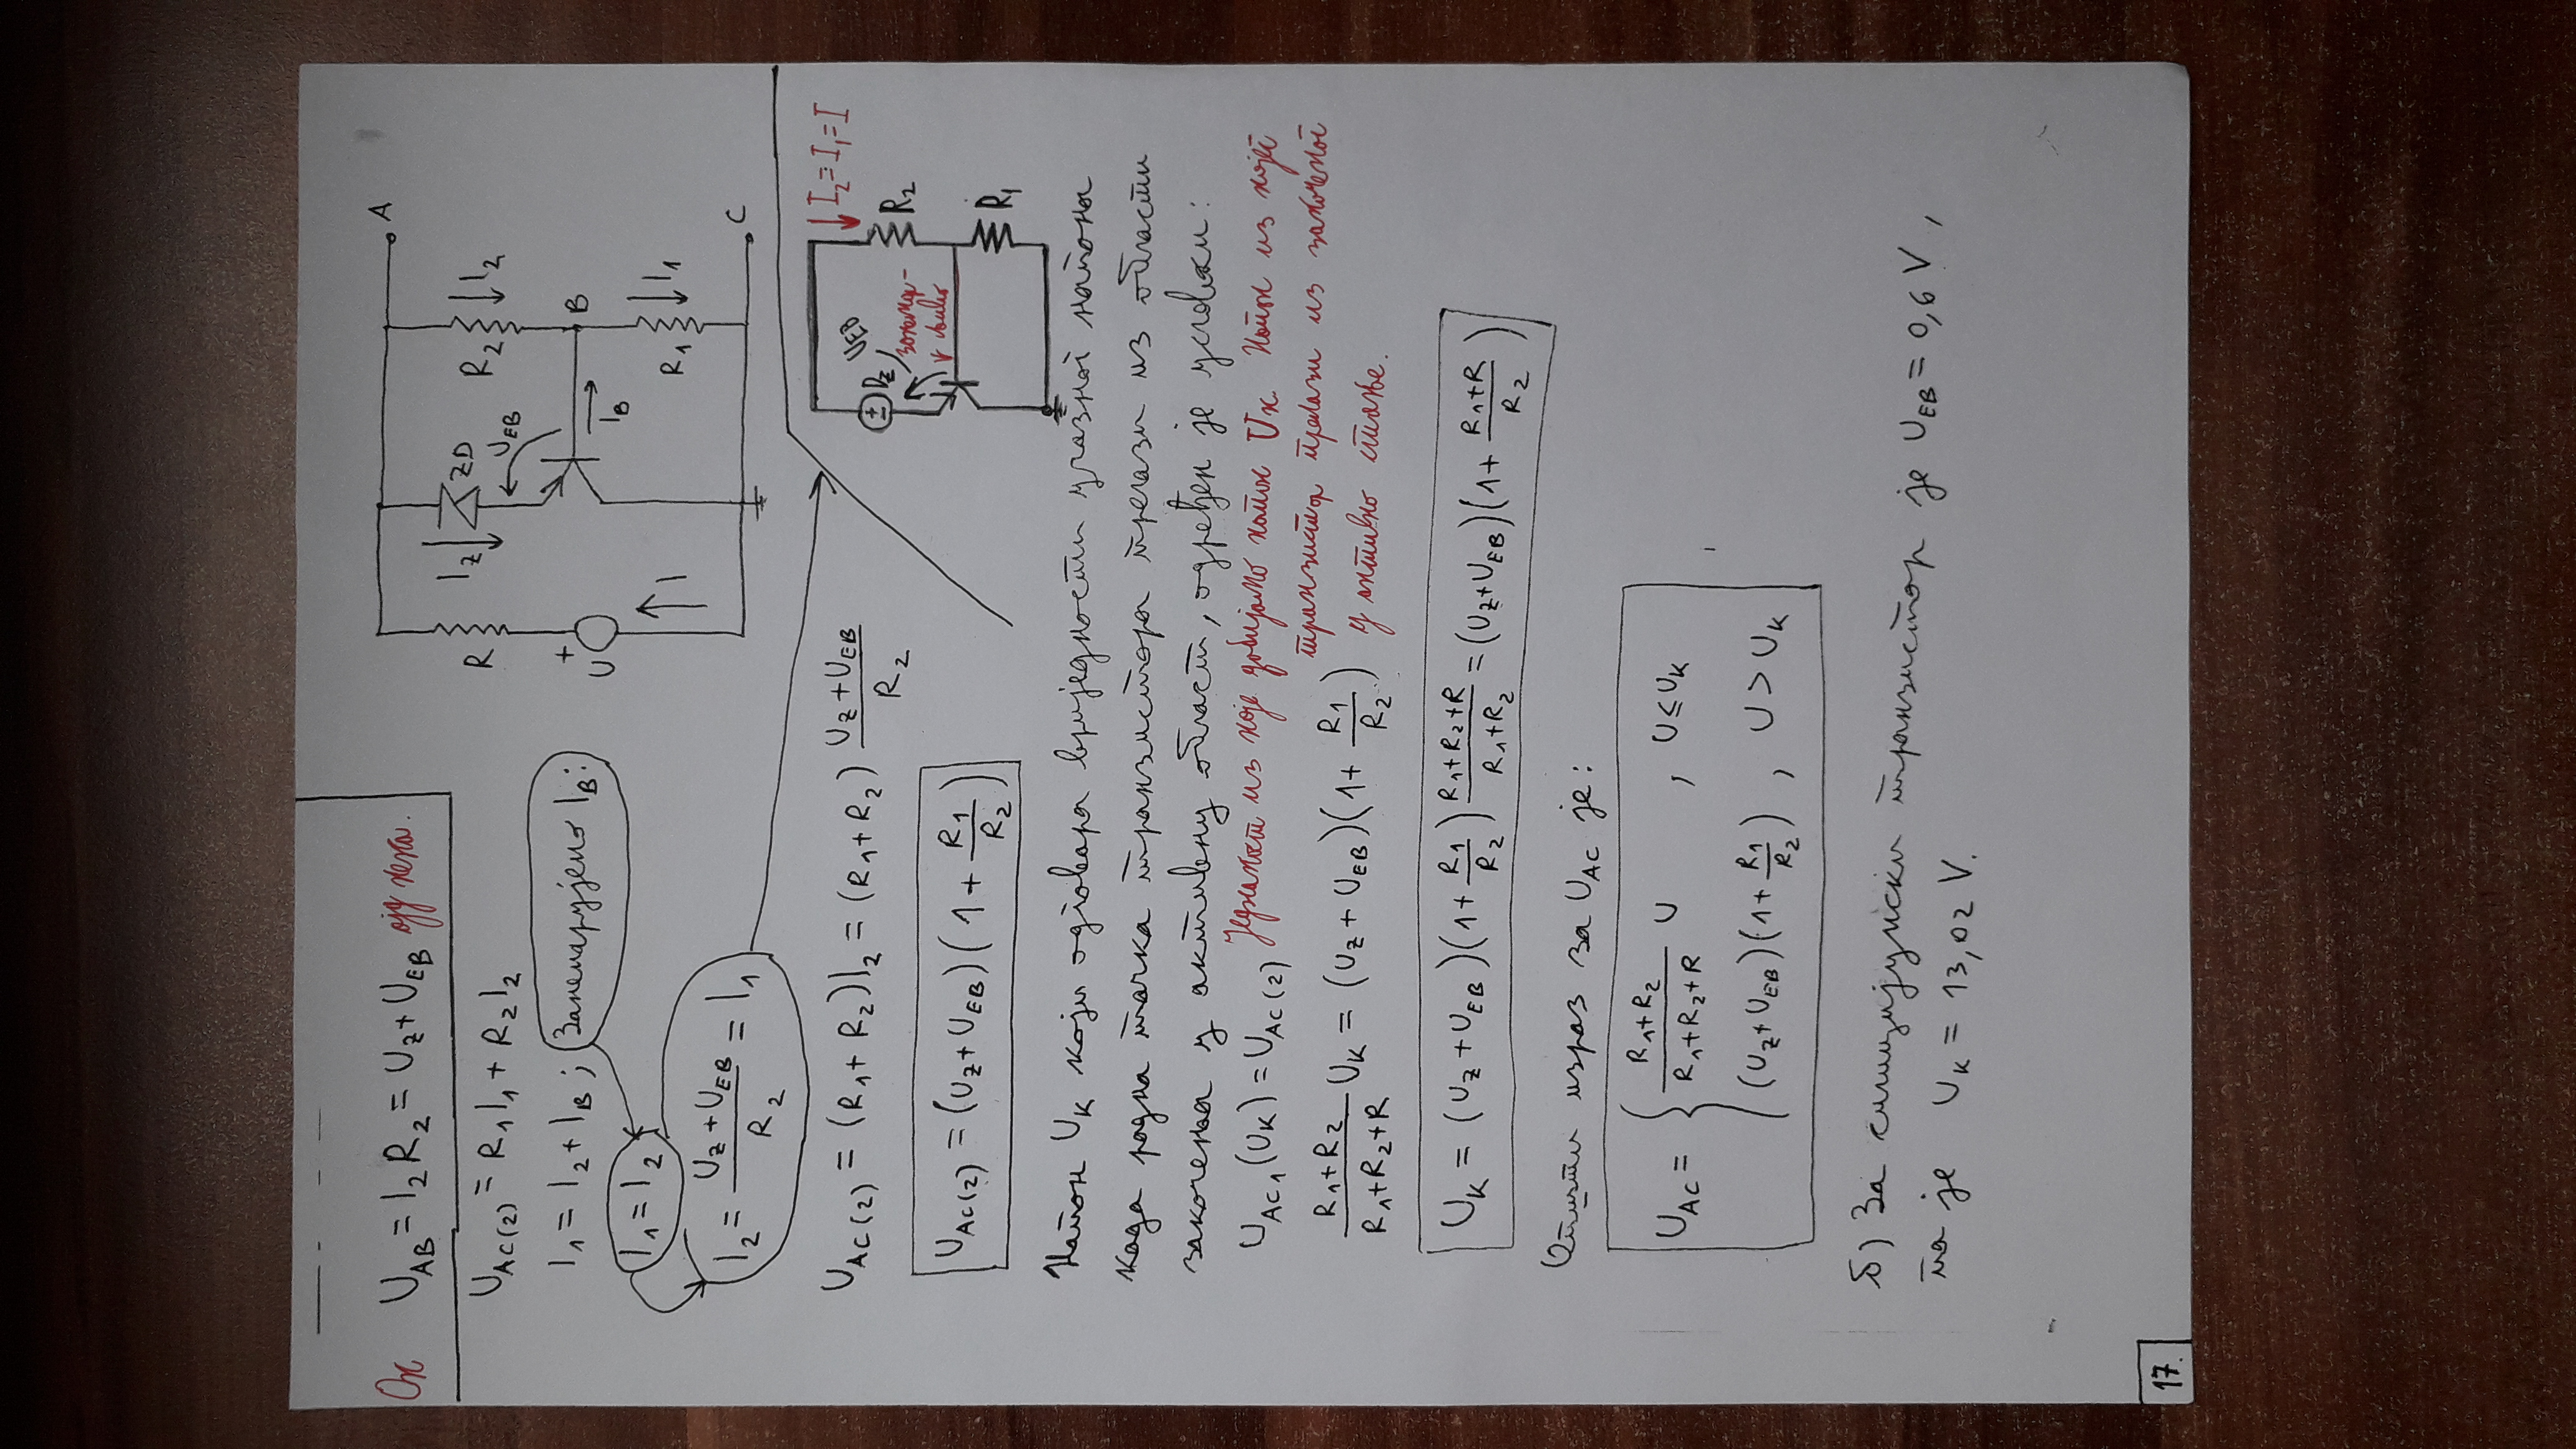 Ок U_AB = I_2 R_2 = U_Z + U_EB
U_AC(2) = R_1 I_1 + R_2 I_2
I_1 = I_2 + I_B ; Занемарујемо I_B:
I_1 = I_2
I_2 = (U_Z + U_EB) / R_2 = I_1
U_AC(2) = (R_1 + R_2) I_2 = (R_1 + R_2) (U_Z + U_EB) / R_2
U_AC(2) = (U_Z + U_EB) (1 + R_1 / R_2)
A
R
I_Z
ZD
R_2
I_2
U_EB
+
U
B
I_B
I
R_1
I_1
C
I_2 = I_1 = I
U_EB
±
D_Z
R_2
R_1
Напон U_K који одговара вриједности улазног напона
када радна тачка транзистора прелази из области
закочења у активну област, одређен је условом:
U_AC1 (U_K) = U_AC(2) Једнакост из које добијамо напон U_K. Напон из којег
транзистор прелази из закоченог
(R_1 + R_2) / (R_1 + R_2 + R) U_K = (U_Z + U_EB) (1 + R_1 / R_2) у активно стање.
U_K = (U_Z + U_EB) (1 + R_1 / R_2) (R_1 + R_2 + R) / (R_1 + R_2) = (U_Z + U_EB) (1 + (R_1 + R) / R_2)
Општи израз за U_AC је:
U_AC = { (R_1 + R_2) / (R_1 + R_2 + R) U , U ≤ U_K
(U_Z + U_EB) (1 + R_1 / R_2) , U > U_K
б) За силицијумски транзистор је U_EB = 0,6 V ,
па је U_K = 13,02 V.
17.